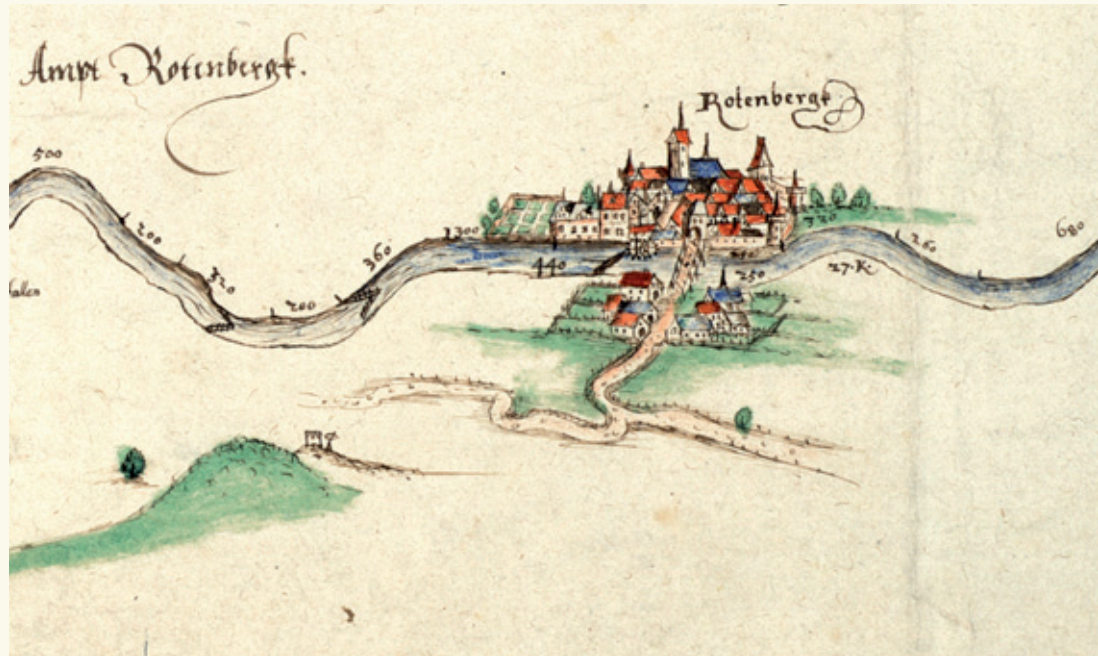 Ampt Rotenbergk.
Rotenbergk
500
200
320
200
360
1300
440
720
250
27. K
260
680